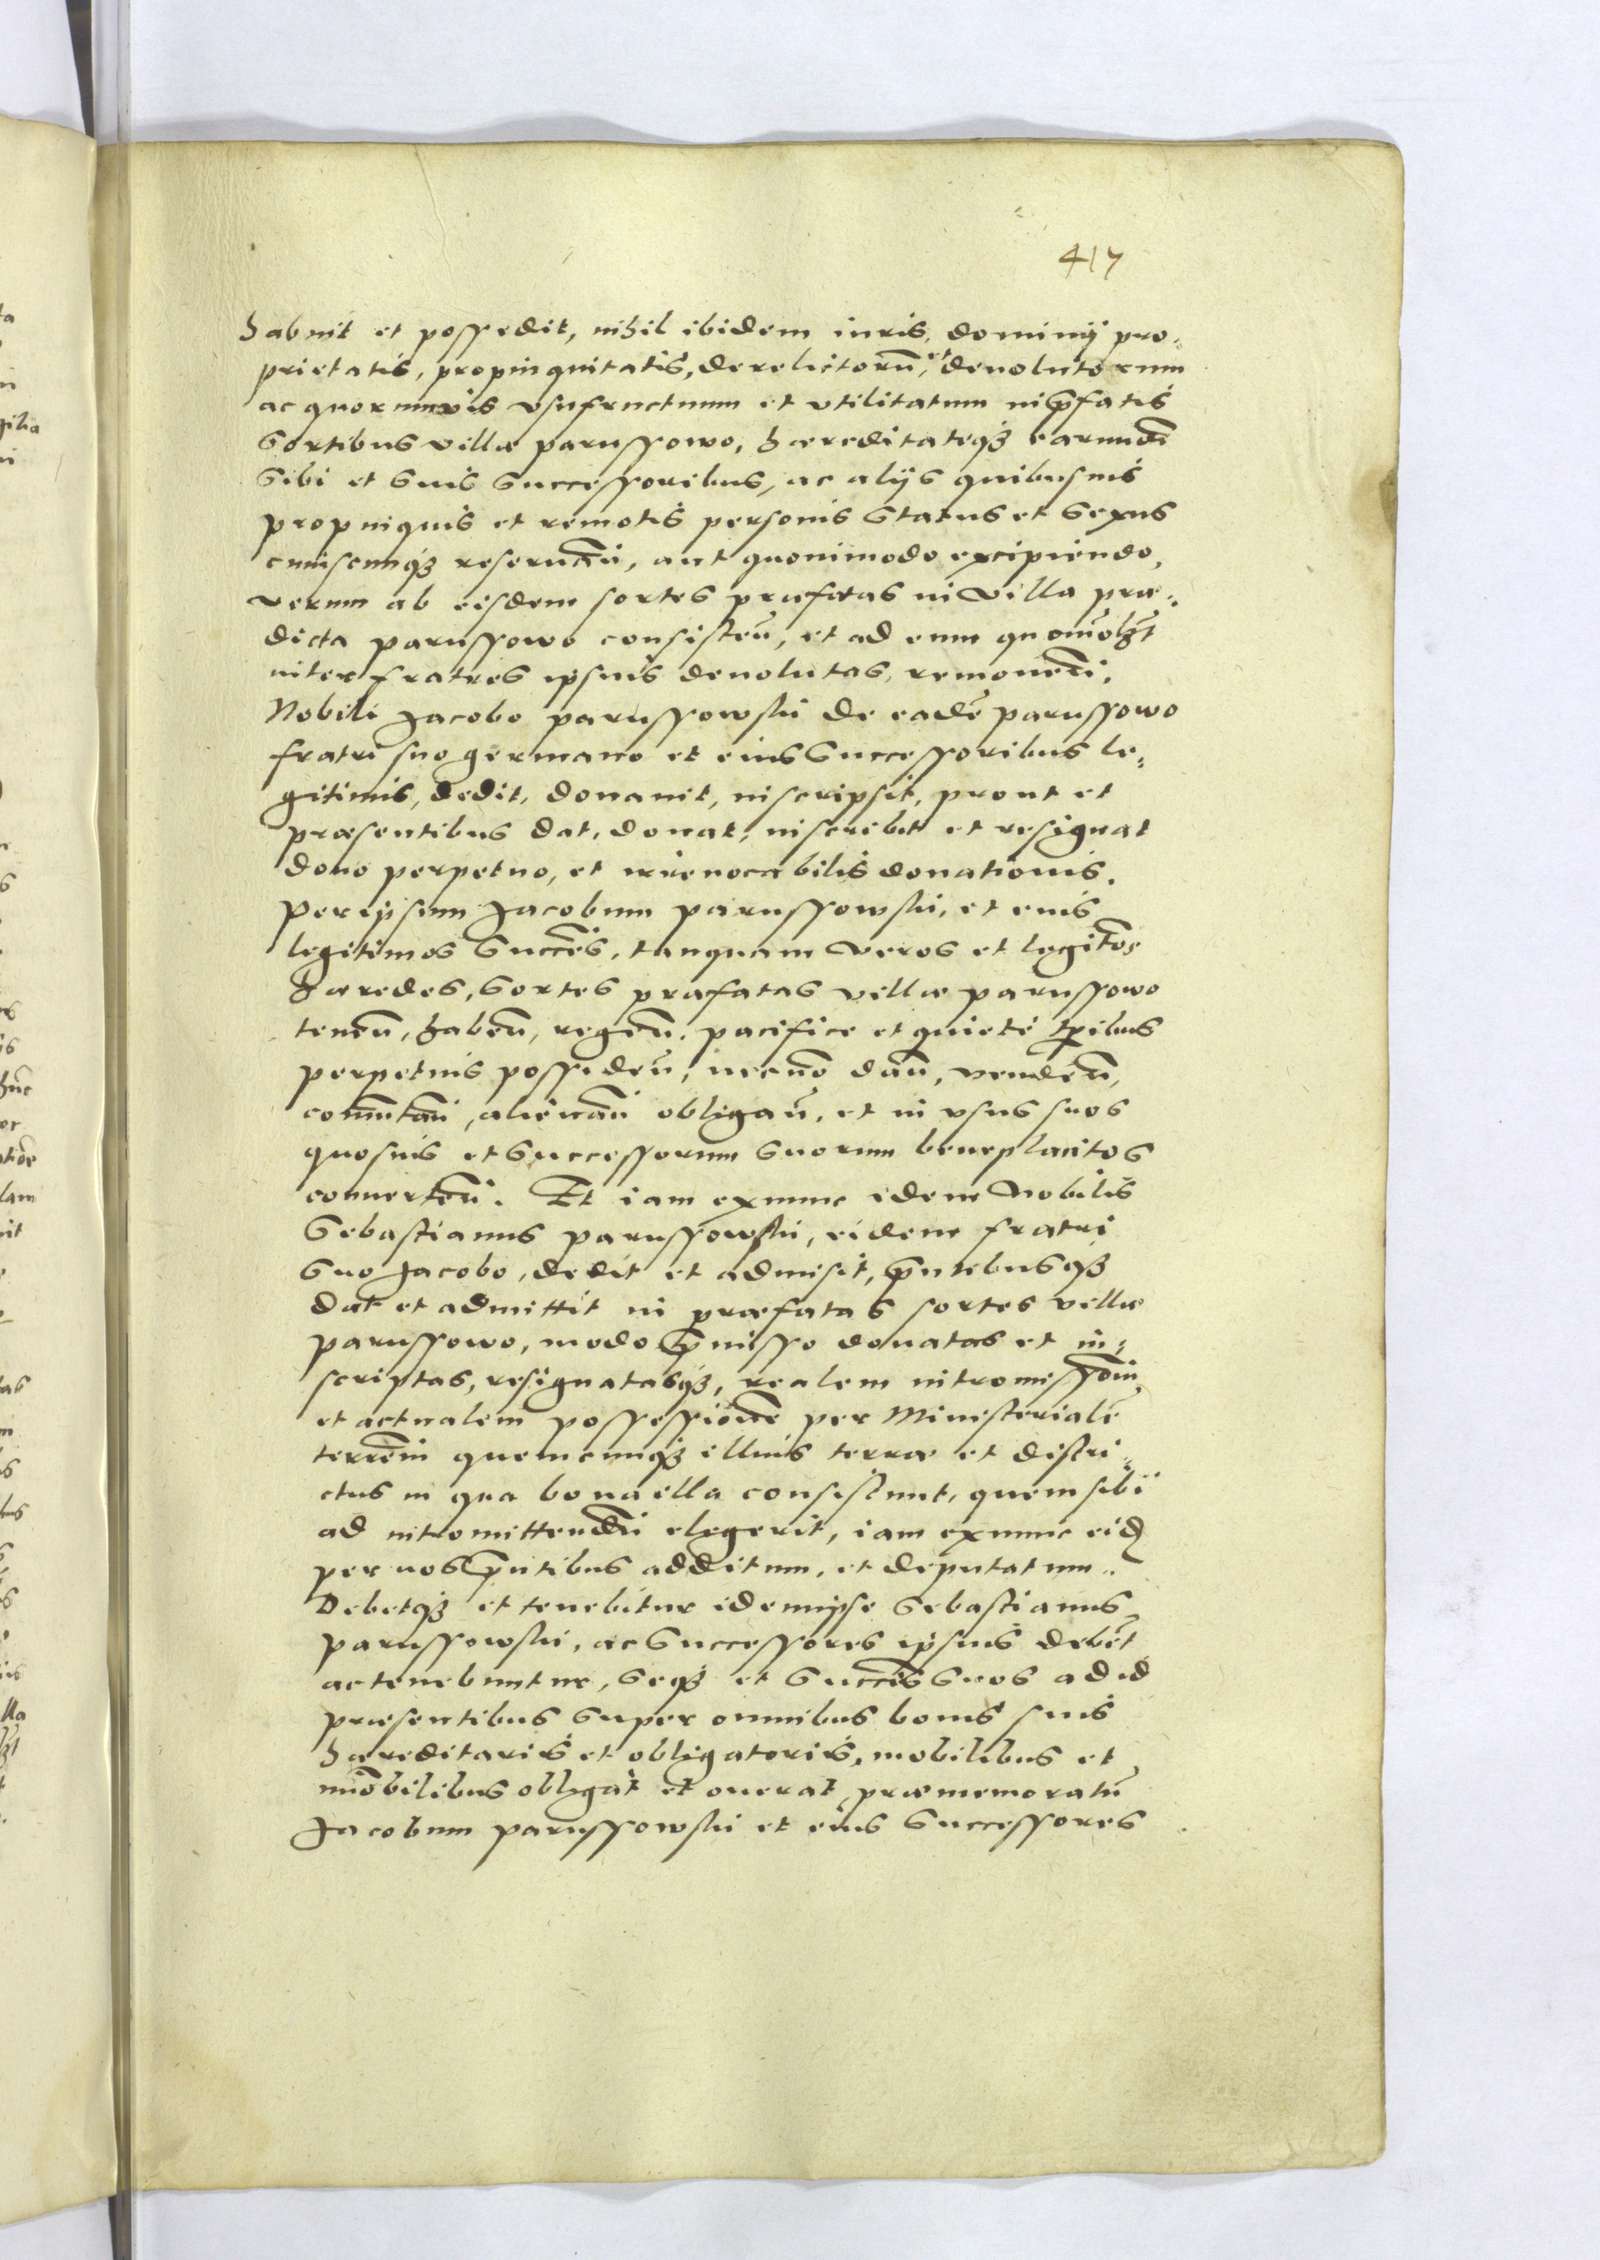 417
habuit et possedit, nihil ibidem iuris, dominij pro-
prietatis, propinquitatis, derelictorũ, et deuolutorum
ac quorumvis vsufructuum et vtilitatum in p̃fatis
sortibus villæ parussowo, hæreditateq3 earundẽ
sibi et suis successoribus, ac alijs quibusuis
propinquis et remotis personis status et sexus
cuiuscunq3 reseruañ, aut quouimodo excipiendo,
verum ab eisdem sortes præfatas in villa præ-
dicta parussowo consisteñ, et ad eum quomõlibet
inter fratres ipsius deuolutas, remoueñ.
Nobili Jacobo parussowski de eadẽ parussowo
fratri suo germano et eius successoribus le-
gitimis, dedit, donauit, inscripsit, prout et
præsentibus dat, donat, inscribit et resignat
dono perpetuo, et irreuocabilis donationis.
Per ipsum Jacobum parussowski, et eius
legitimos succẽs, tanquam veros et legitõs
hæredes, sortes præfatas villæ parussowo
teneñ, habeñ, regeñ, pacifice et quiete tp̃ribus
perpetuis possideñ, necnõ dañ, vendeñ,
com̃utañ, alienañ obligañ, et in vsus suos
quosuis et successorum suorum beneplacitos
conuerteñ. Et iam exnunc idem Nobilis
Sebastianus parussowski, eidem fratri
suo Jacobo, dedit et admisit, p̃ntibusq3
dat et admittit in præfatas sortes villæ
parussowo, modo p̃misso donatas et in-
scriptas, resignatasq3, realem intromissiõm
et actualem possessionẽ per Ministerialẽ
terrẽm quemcunq3 illius terræ et distri-
ctus in qua bona illa consistunt, quem sibi
ad intromittendũ elegerit, iam exnunc eid
per nos p̃ntibus additum, et deputatum.
Debetq3 et tenebitur idem ipse Sebastianus
parussowski, ac successores ipsius debẽt
ac tenebuntur, seq3 et succẽs suos ad id
præsentibus super omnibus bonis suis
hæreditarijs et obligatorijs, mobilibus et
im̃obilibus obligat et onerat, præmemoratũ
Jacobum parussowski et eius successores